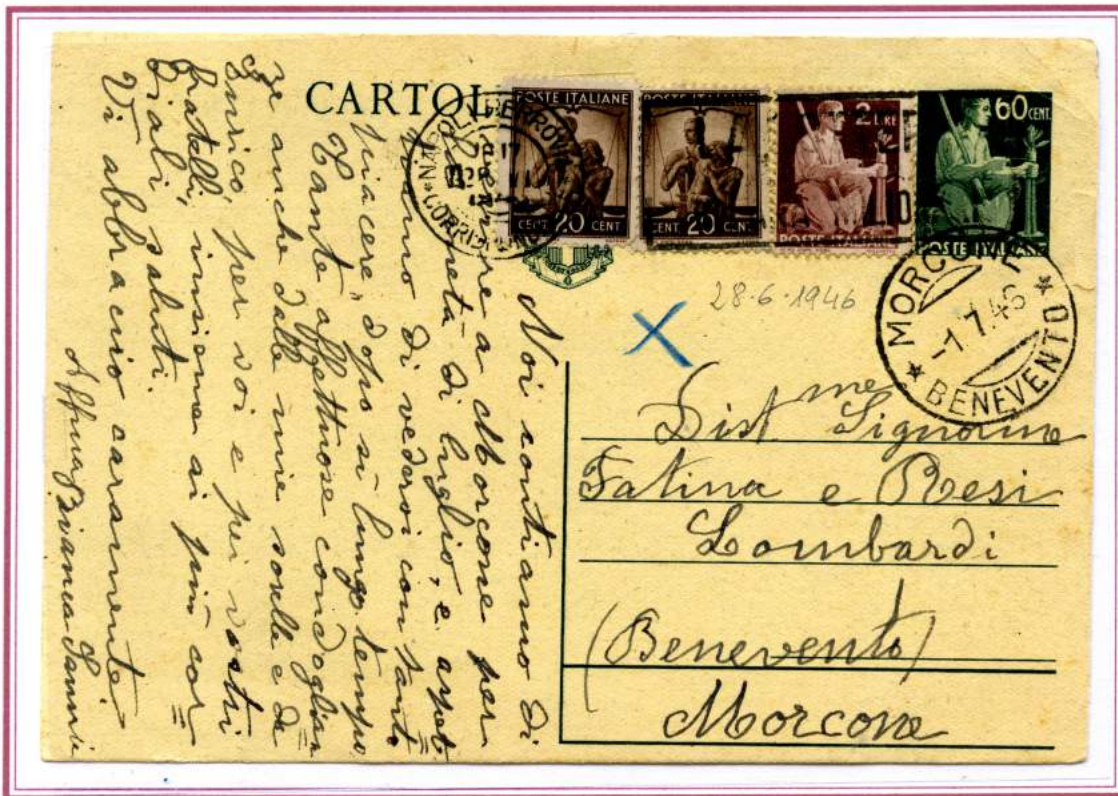 CARTOL
POSTE ITALIANE
CENT. 20 CENT
POSTE ITALIANE
CENT. 20 CENT
2 LIRE
POSTE ITALIANE
60 CENT.
POSTE ITALIANE
NAPOLI FERROVIA
CORRISP
28·6·1946
X
MORCONE
-1.7.46
BENEVENTO
Dist.me Signorine
Fatina e Resi
Lombardi
(Benevento)
Morcone
Noi contiamo di
venire a Morcone per
metà di luglio, e aspet=
tiamo di vedervi con tanto
piacere, dopo sì lungo tempo.
Tante affettuose condoglian=
ze anche dalle mie sorelle e da
Enrico, per voi e pei vostri
fratelli, insieme ai più cor=
diali saluti.
Vi abbraccio caramente
Aff.ma Bianca